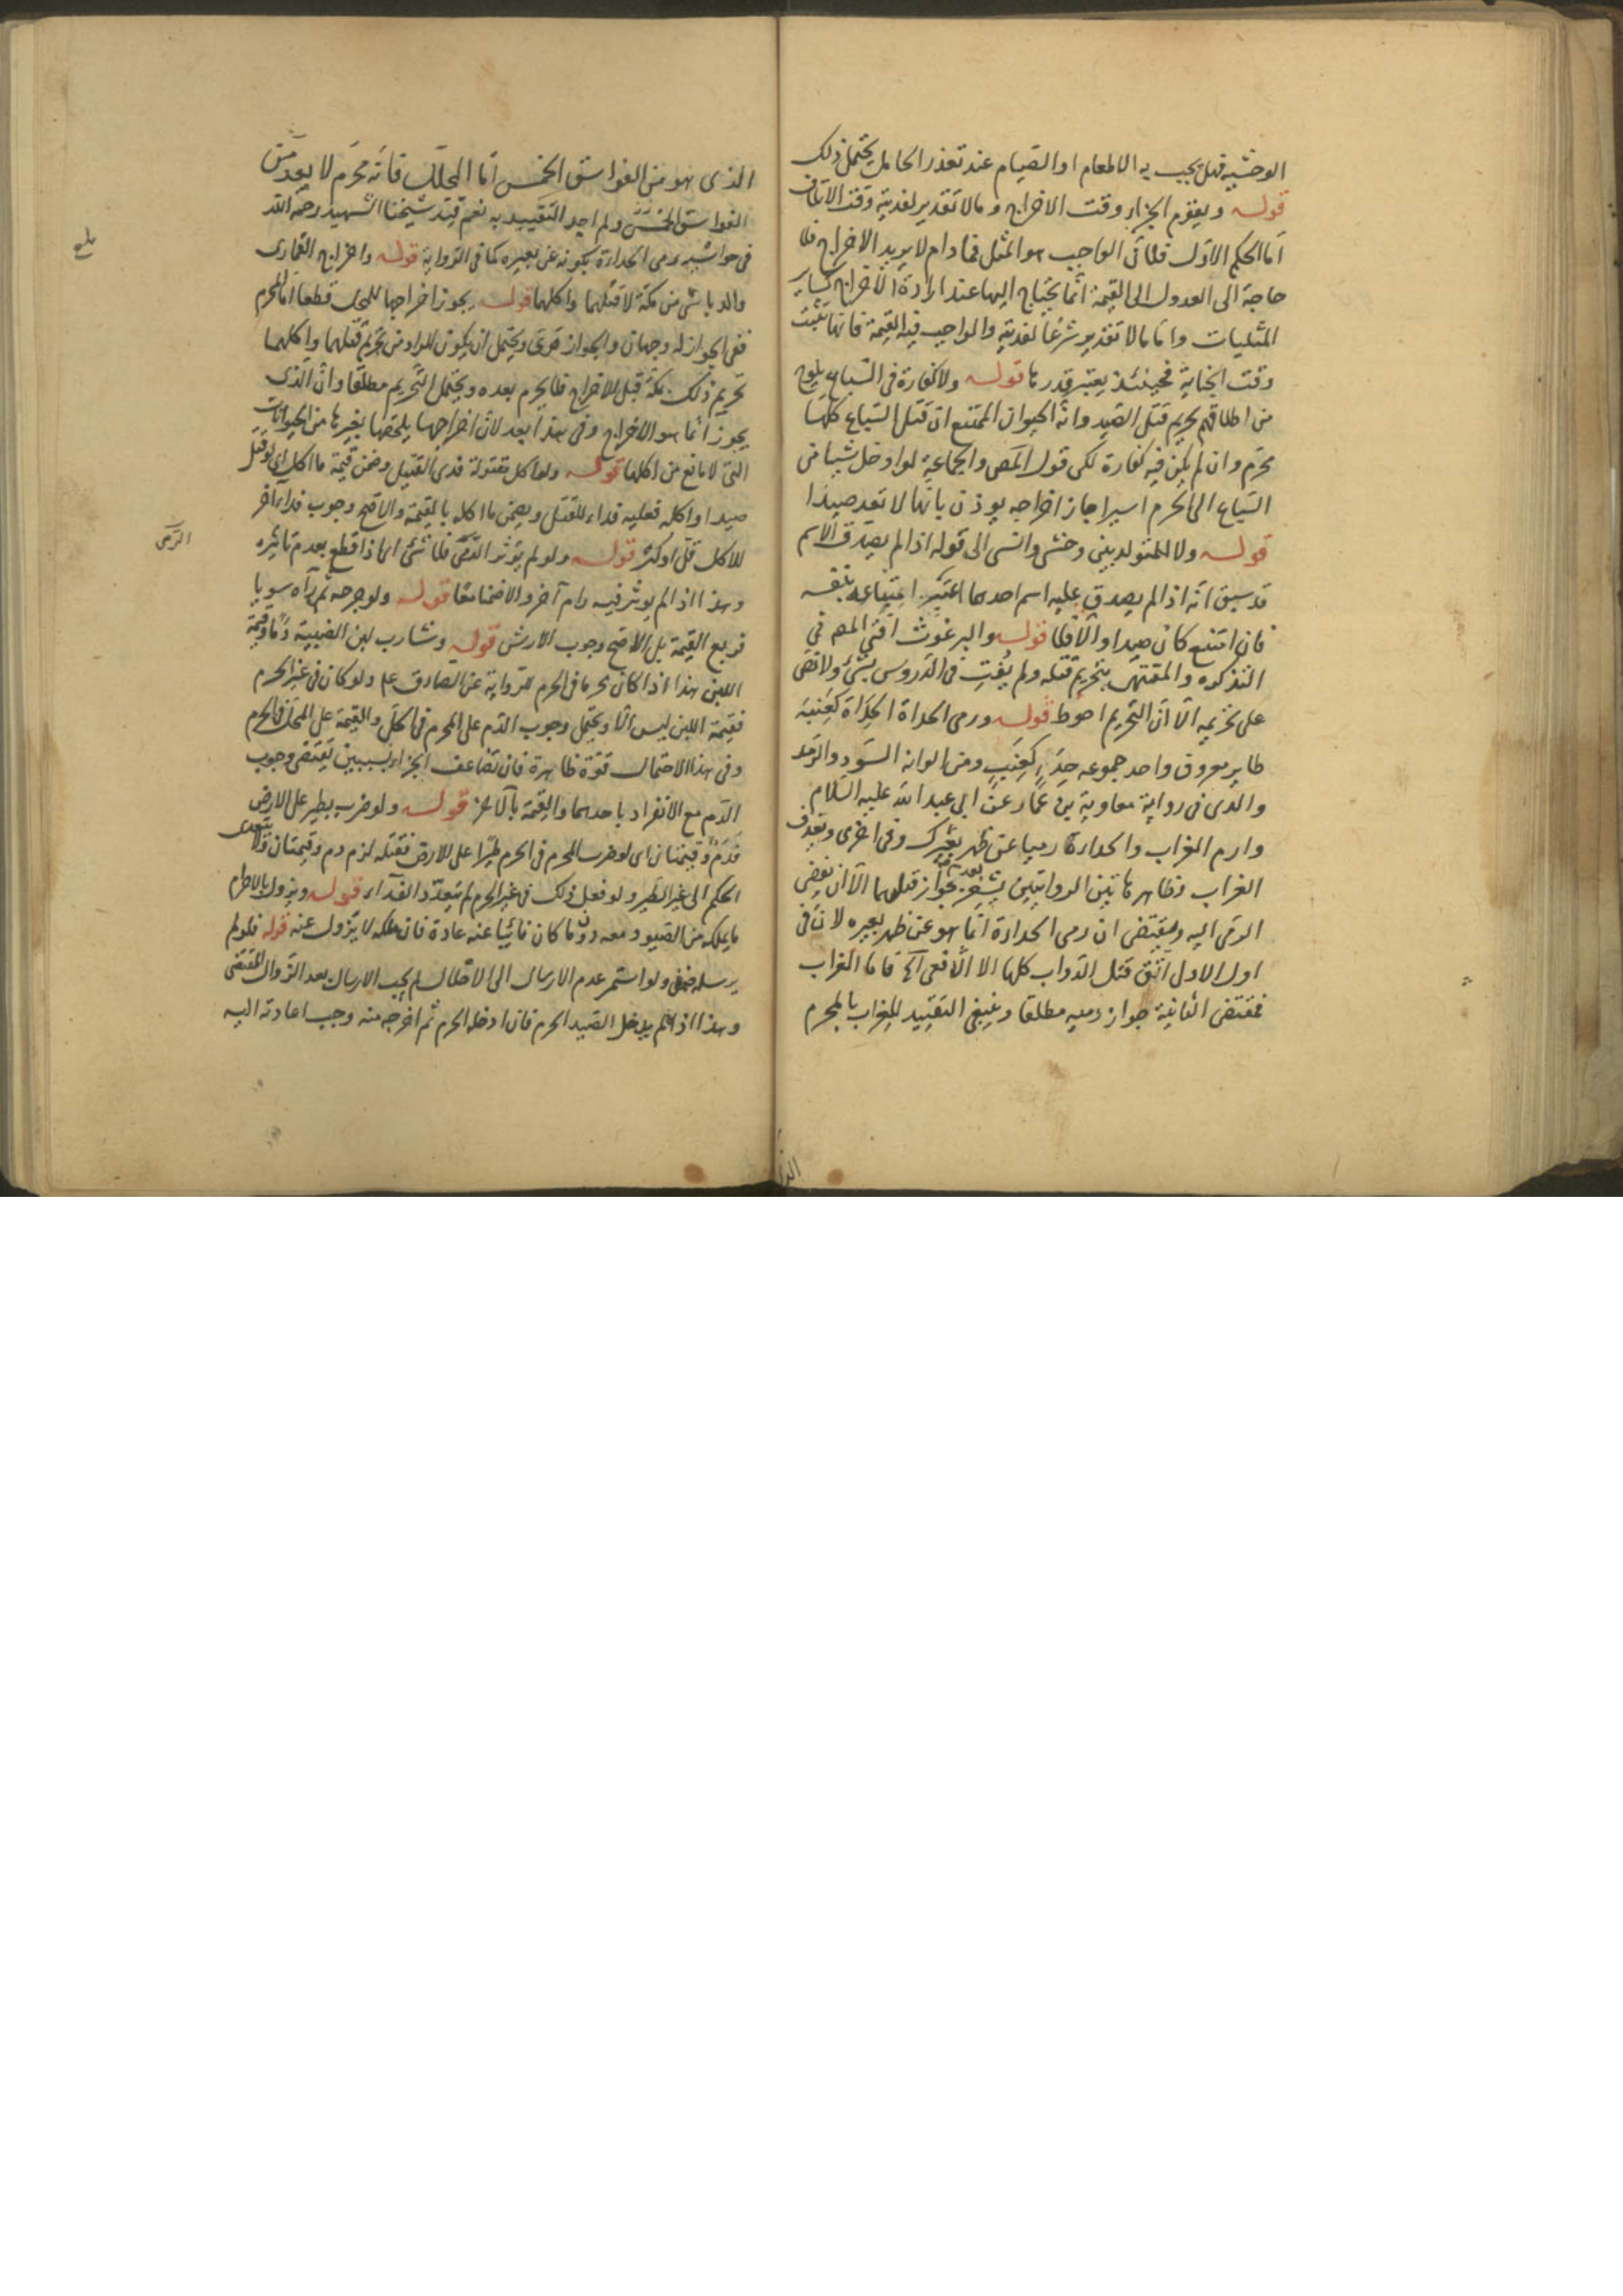 الوحشية فهل يجب به الاطعام او الصيام عند تعذر الحامل يحتمل ذلك
قوله ويقوم الجزاء وقت الاخراج وما لا تقدير لفديته وقت الاتلاف
اما الحكم الاول فلان الواجب هو المثل فما دام لا يريد الاخراج فلا
حاجة الى العدول الى القيمة انما يحتاج اليها عند ارادة الاخراج كساير
المثليات واما ما لا تقدير شرعا لفديته والواجب فيه القيمة فانها تثبت
وقت الجناية فحينئذ يعتبر قدرها قوله ولا كفارة في السباع يلوح
من اطلاقهم تحريم قتل الصيد وانه الحيوان الممتنع ان قتل السباع كلها
محرم وان لم يكن فيه كفارة لكن قول المص والجماعة لو ادخل شيئا من
السباع الى الحرم اسيرا جاز اخراجه يوذن بانها لا تعد صيدا
قوله ولا المتولد بين وحشي وانسي الى قوله اذا لم يصدق الاسم
قد سبق انه اذا لم يصدق عليه اسم احدهما اعتبر امتناعه بنفسه
فان امتنع كان صيدا والا فلا قوله والبرغوث افتى المص في
التذكره والمنتهى بتحريم قتله ولم يفت في الدروس بشئ ولا نص
على تحريمه الا ان التحريم احوط قوله ورمى الحداة الحداة كعنبة
طاير معروف واحد جموعه حداء كعنب ومن الوانه السود والرمد
والذى في رواية معاوية بن عمار عن ابي عبد الله عليه السلام
وارم الغراب والحداءة رميا عن ظهر بعيرك وفي اخرى ويقذف
الغراب وظاهر هاتين الروايتين يشعر بعدم جواز قتلهما الا ان يفضي
الرمى اليه ويقتضى ان رمى الحداءة انما هو عن ظهر بعيره لان في
اول الاول اتق قتل الدواب كلها الا الافعى الخ فاما الغراب
فمقتضى الثانية جواز رميه مطلقا وينبغي التقييد للغراب بالمحرم
الذى هو من الفواسق الخمس اما المحلل فانه محرم لا يعد من
الفواسق الخمس ولم اجد التقييد به نعم قيد شيخنا الشهيد رحمه الله
في حواشيه رمى الحداءة بكونه عن بعيره كما في الرواية قوله واخراج القمارى
والدباشى من مكة لا قتلهما واكلهما قوله يجوز اخراجها للمحل قطعا اما المحرم
ففي الجواز له وجهان والجواز قوى ويحتمل ان يكون المراد من تحريم قتلهما واكلهما
تحريم ذلك بمكة قبل الاخراج فلا يحرم بعده ويحتمل التحريم مطلقا وان الذى
يجوز انما هو الاخراج وفي هذا بعد لان اخراجها يلحقها بغيرها من الحيوانات
التى لا مانع من اكلها قوله ولو اكل مقتولة فدى القتيل وضمن قيمة ما اكل اى لو قتل
صيدا واكله فعليه فداء للقتل ويضمن ما اكله بالقيمة والاصح وجوب فداء آخر
للاكل قل او كثر قوله ولو لم يؤثر الرمى فلا شئ اى اذا قطع بعدم تاثيره
الرمى
وهذا اذا لم يوثر فيه رام آخر والا ضمنا معا قوله ولو جرحه ثم رآه سويا
فربع القيمة بل الاصح وجوب الارش قوله وشارب لبن الضبية دما وقيمة
اللبن هذا اذا كان محرما في الحرم للرواية عن الصادق عم ولو كان في غير الحرم
فقيمة اللبن ليس الا ويحتمل وجوب الدم على المحرم في الحل والقيمة على المحل في الحرم
وفي هذا الاحتمال قوة ظاهرة فان تضاعف الجزاء بسببين يقتضى وجوب
الدم مع الانفراد باحدهما والقيمة بالآخر قوله ولو ضرب بطير على الارض
فدم وقيمتان اى لو ضرب المحرم في الحرم طيرا على الارض فقتله لزم دم وقيمتان ولا يتعدى
الحكم الى غير الطير ولو فعل ذلك في غير الحرم لم يتعدد الفداء قوله ويزول بالاحرام
ما يملكه من الصيود معه دون ما كان نائيا عنه عادة فان ملكه لا يزول عنه قوله فلو لم
يرسله ضمن ولو استمر عدم الارسال الى الاحلال لم يجب الارسال بعد الزوال المقتضى
وهذا اذا لم يدخل الصيد الحرم فان ادخله الحرم ثم اخرجه منه وجب اعادته اليه